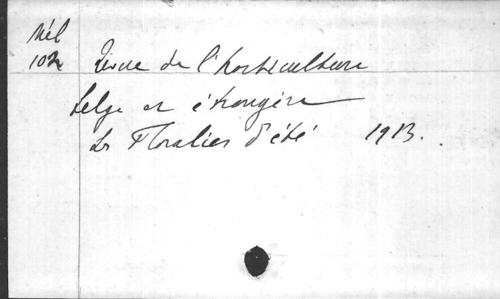 Mél
102 Revue de l'horticulture
belge et étrangère
Les Floralies d'été 1913.